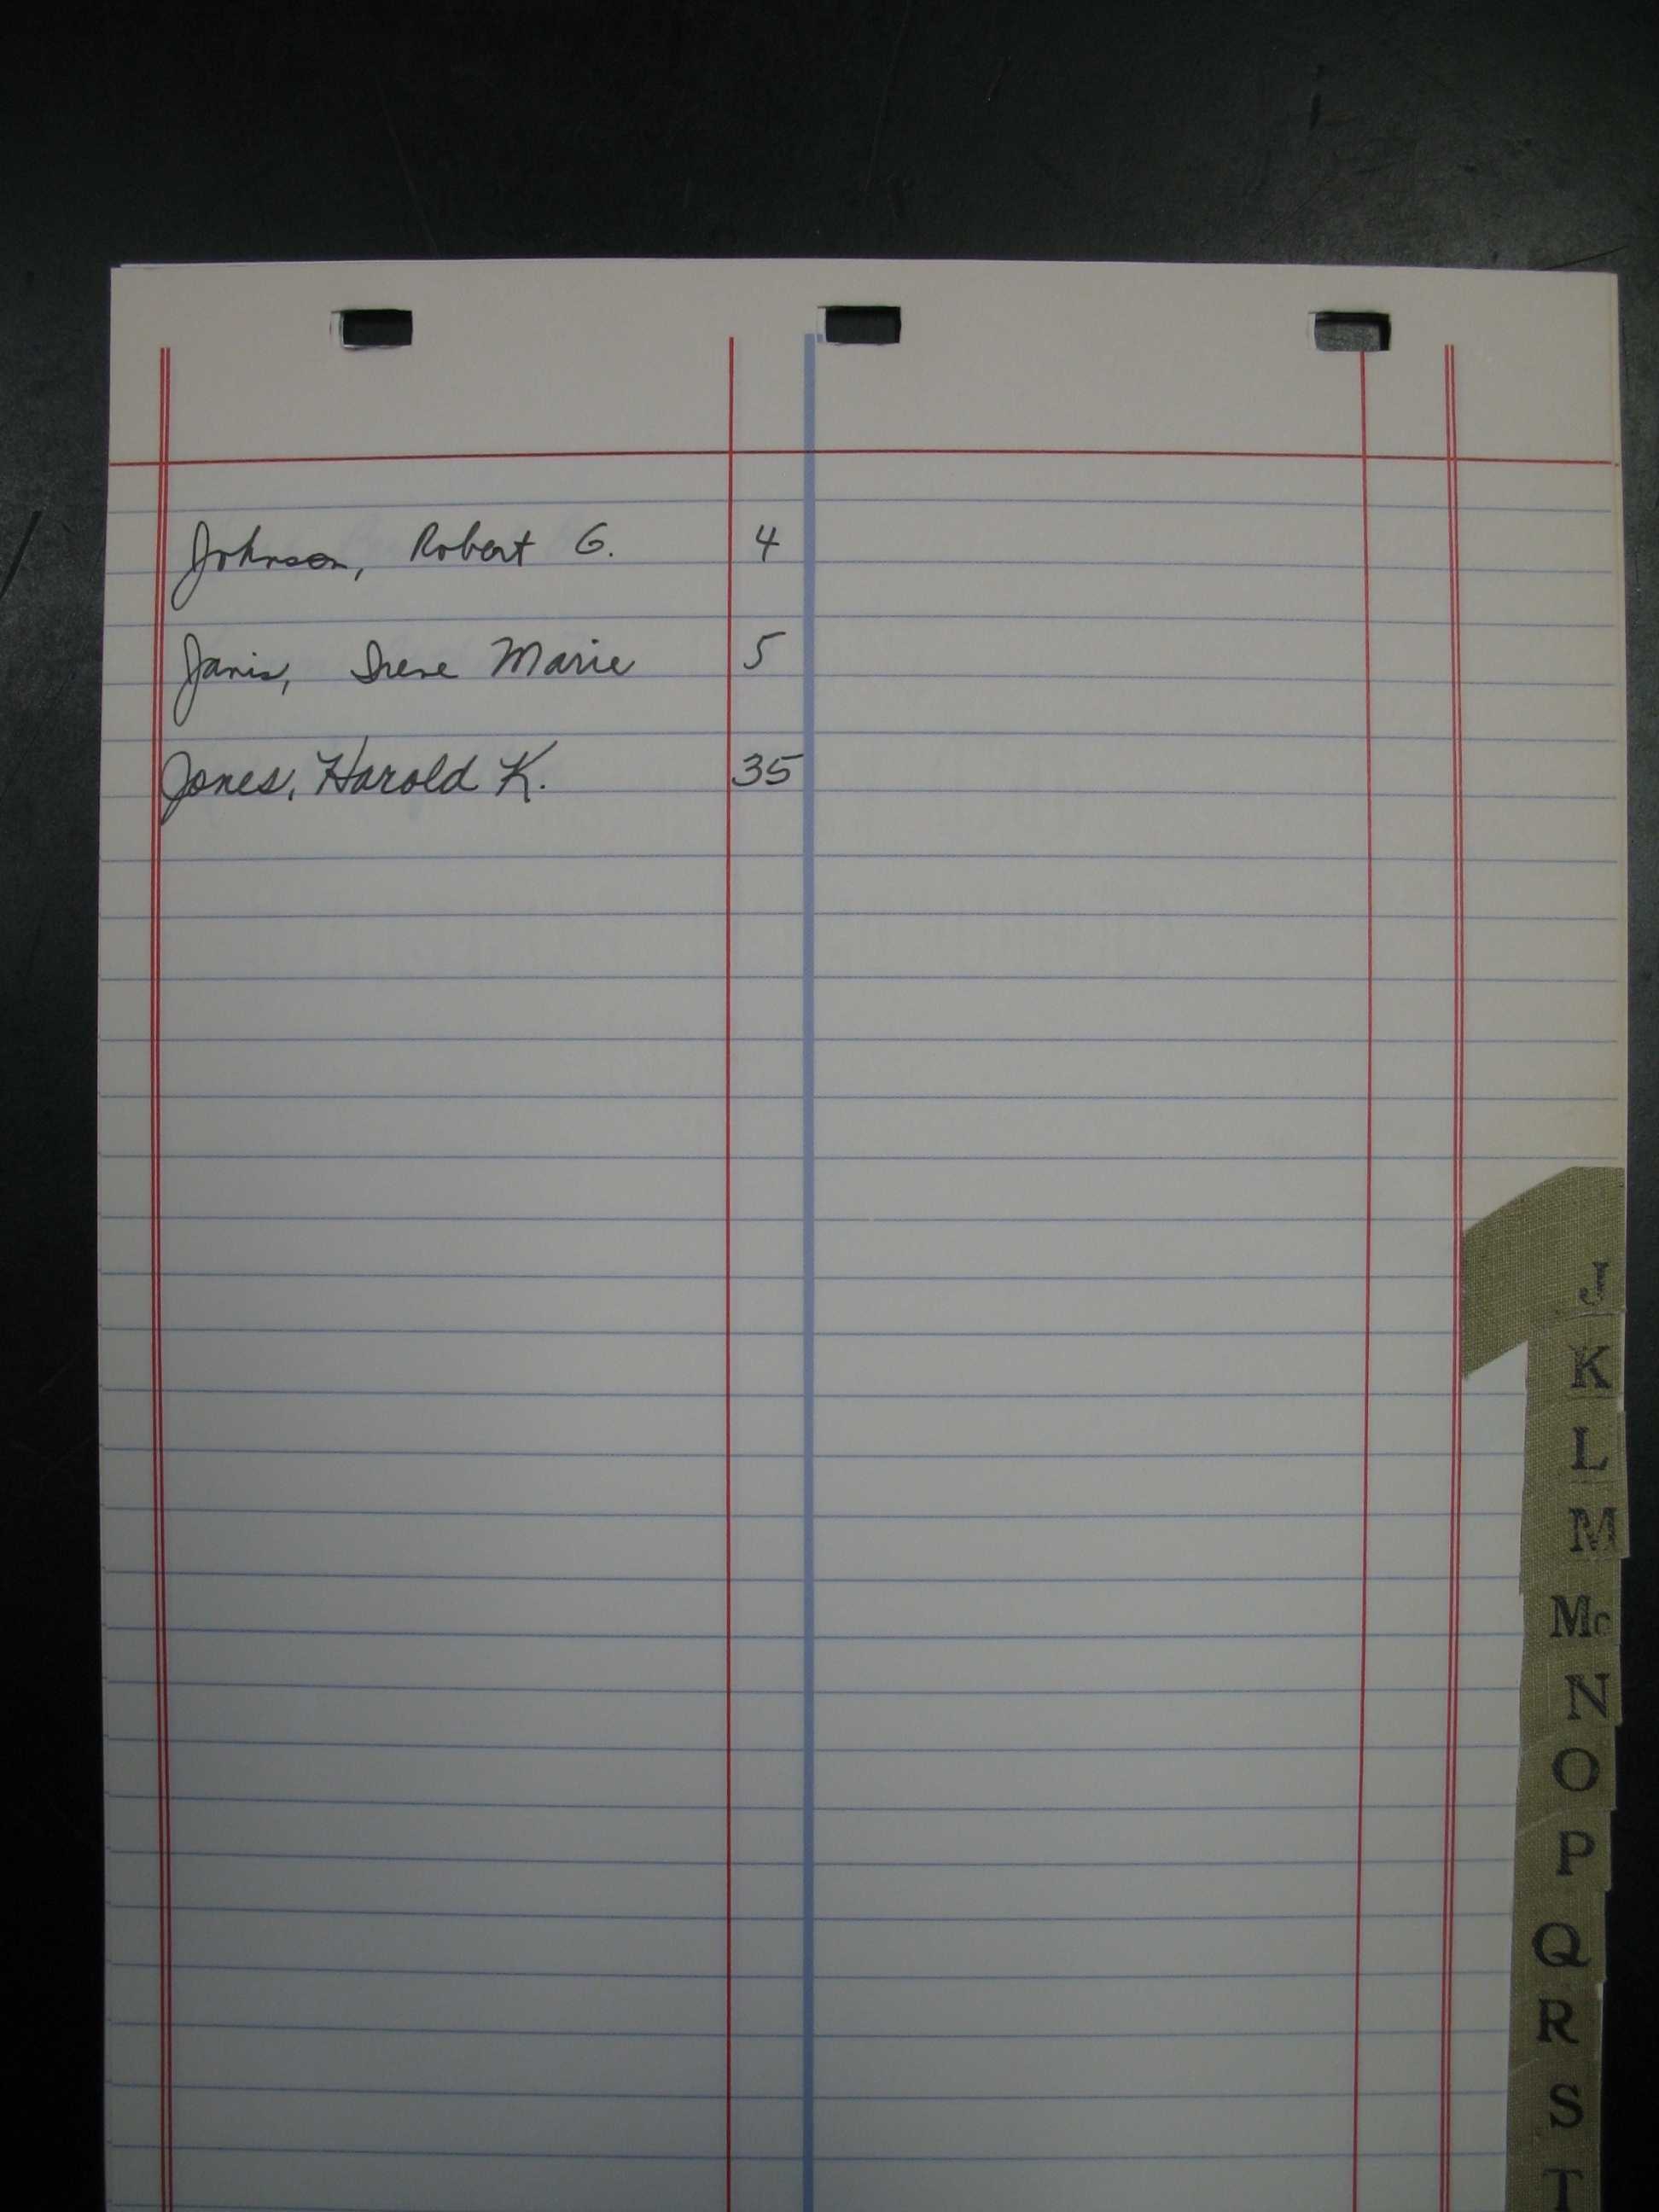 Johnson, Robert G. 4
Janis, Irene Marie 5
Jones, Harold K. 35
J
K
L
M
Mc
N
O
P
Q
R
S
T